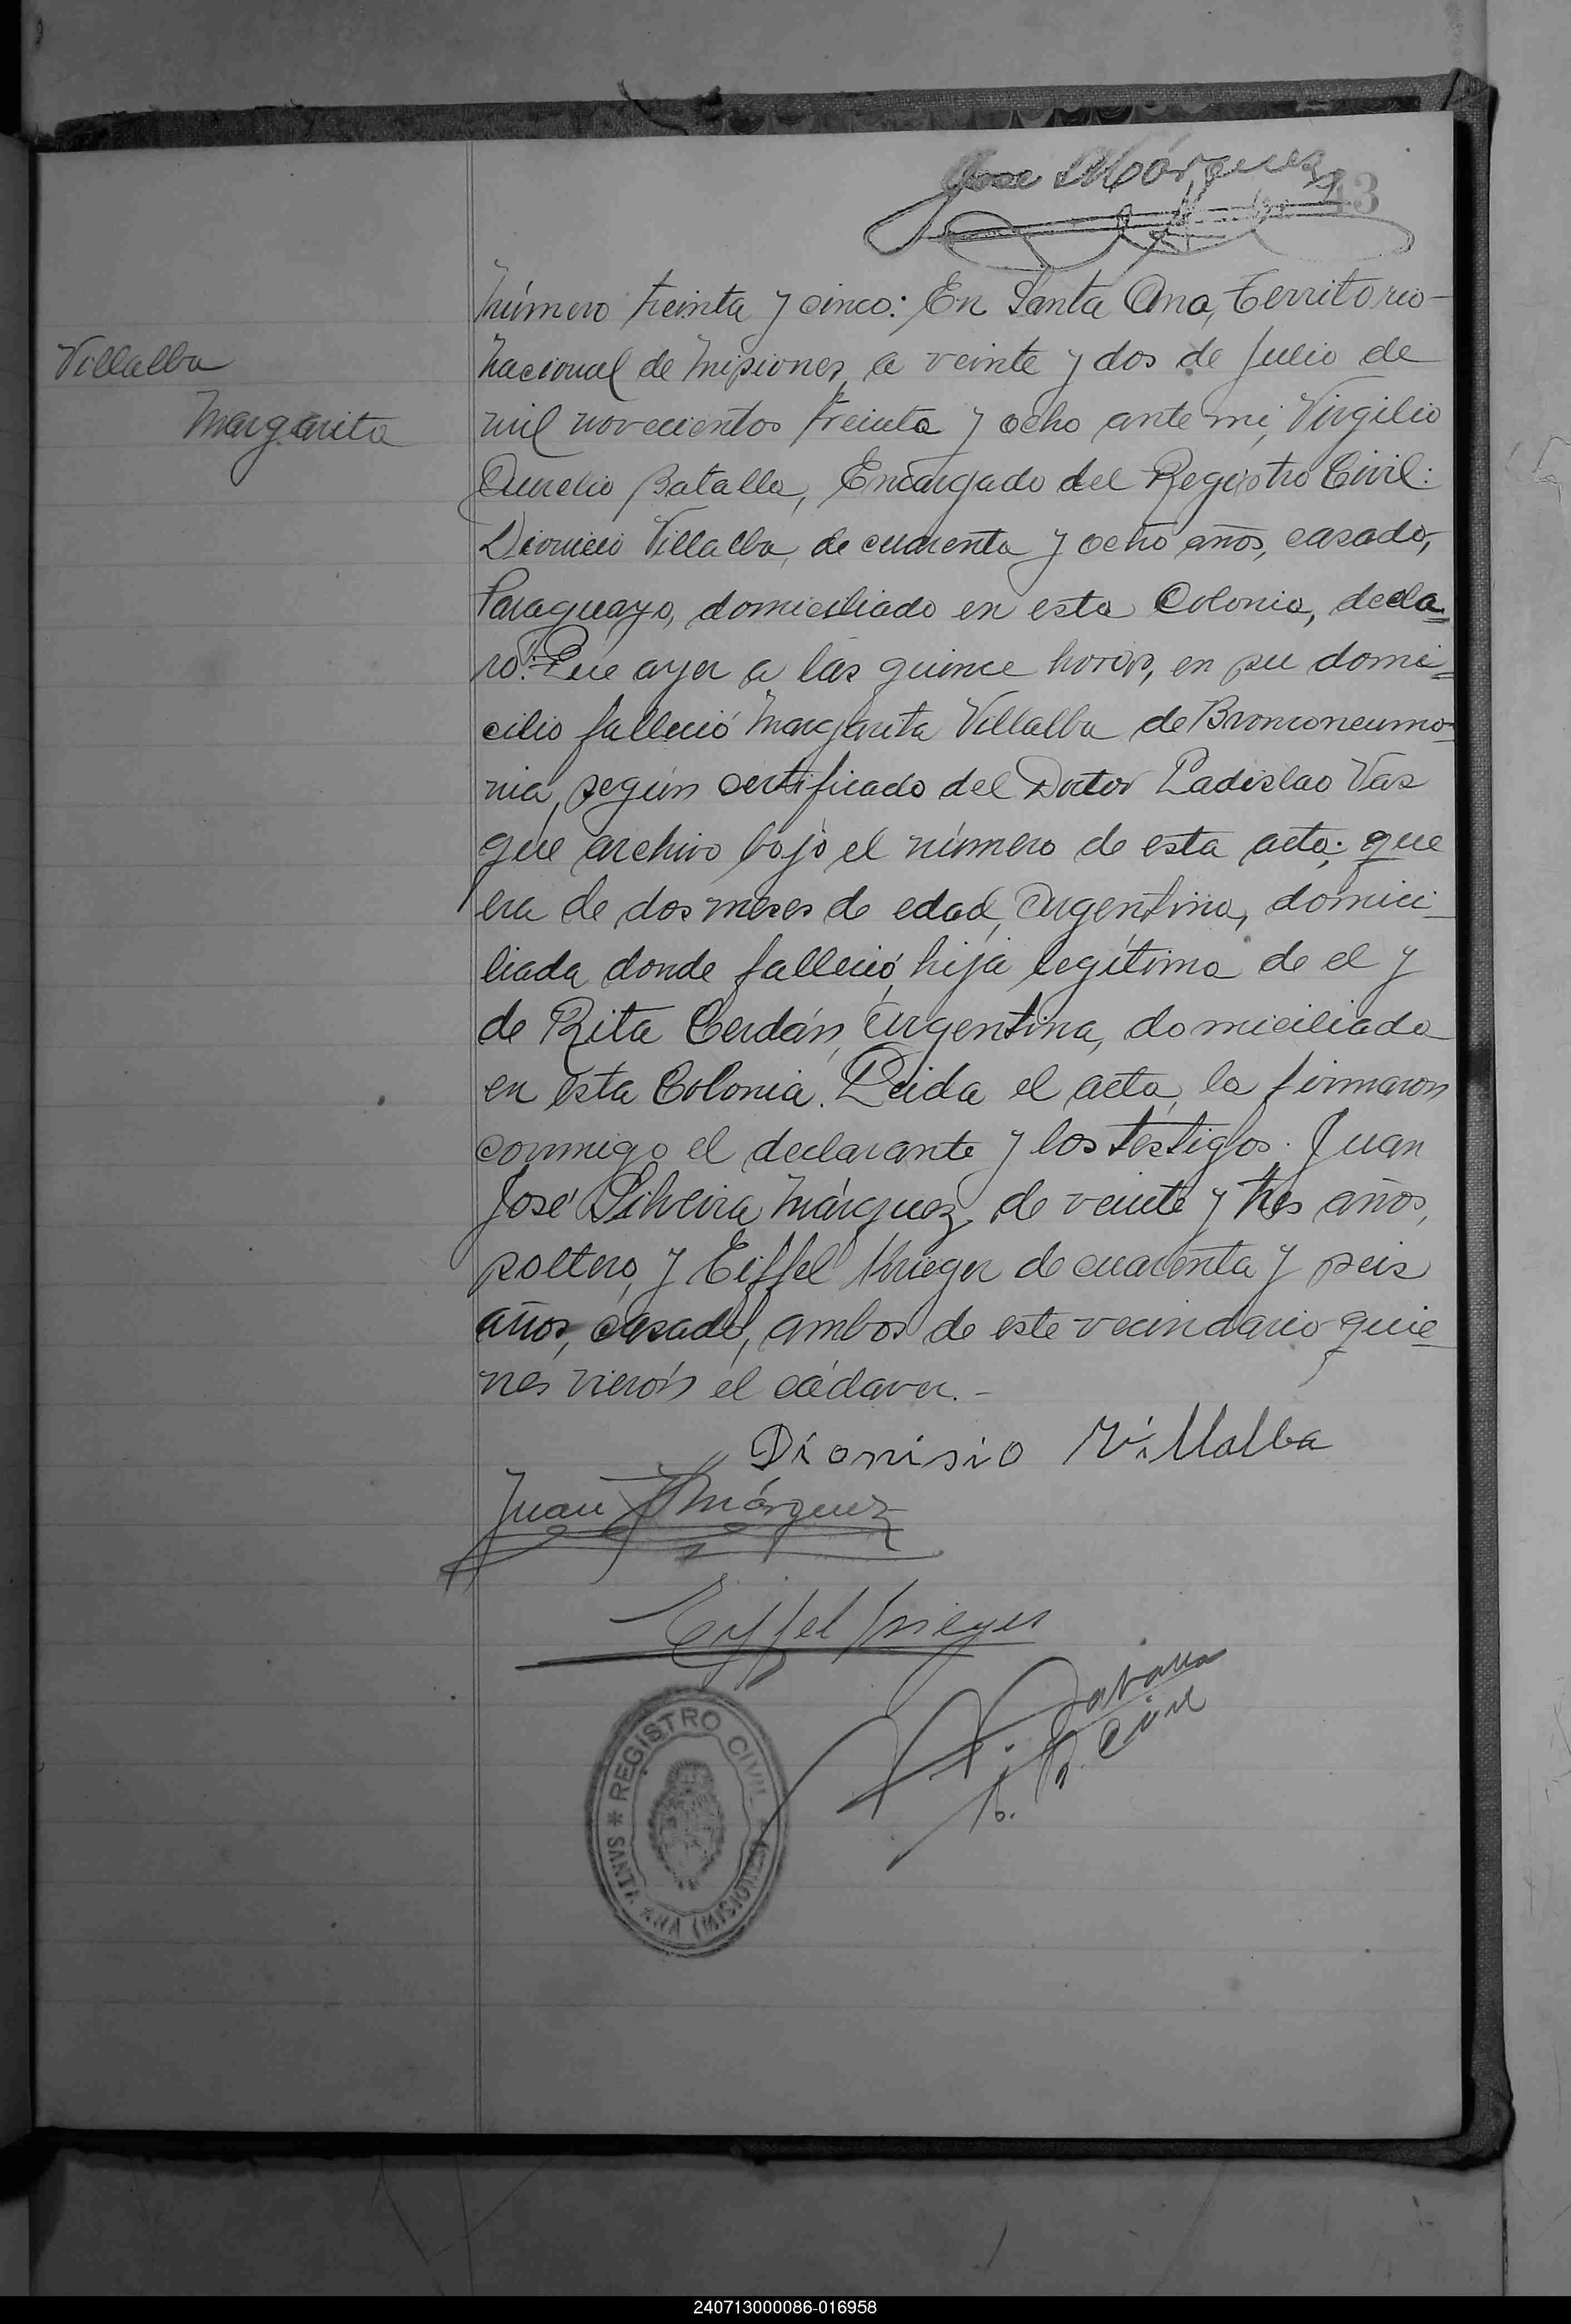 Jose Márquez
43
Villalba
Margarita
Número treinta y cinco: En Santa Ana, Territorio
Nacional de Misiones, a veinte y dos de Julio de
mil novecientos treinta y ocho ante mi, Virgilio
Aurelio Batalla, Encargado del Registro Civil:
Dionicio Villalba, de cuarenta y ocho años, casado,
Paraguayo, domiciliado en esta Colonia, decla=
ró: Que ayer a las quince horas, en su domi=
cilio falleció Margarita Villalba de Bronconeumo=
nia, según certificado del Doctor Ladislao Vas
que archivo bajo el número de esta acta; que
era de dos meses de edad, Argentina, domici-
liada donde falleció, hija legítima de el y
de Rita Cerdán, Argentina, domiciliada
en esta Colonia. Leida el acta, la firmaron
conmigo el declarante y los testigos: Juan
José Silveira Márquez, de veinte y tres años,
soltero, y Eiffel Krieger de cuarenta y seis
años, casado, ambos de este vecindario quie-
nes vierón el cádaver.-
Dionisio Villalba
Juan J Márquez
Eiffel Krieger
R. Civil
* REGISTRO CIVIL * SANTA ANA (MISIONES)
240713000086-016958